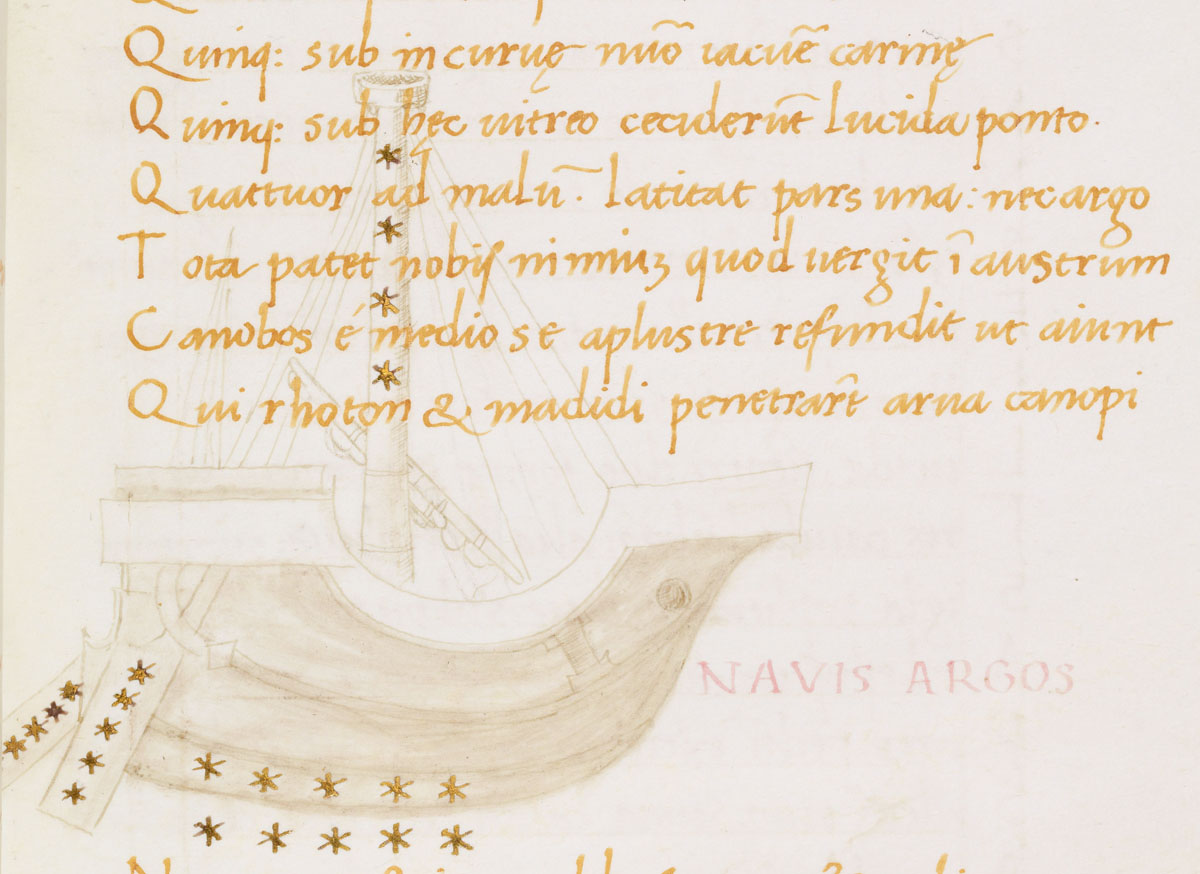 Quinq: sub incuruę nuõ iacuẽ carinę
Quinq: sub hęc uitreo cecideruñt lucida ponto.
Quattuor ad malũ. latitat pars una: nec argo
Tota patet nobis nimiuʒ quod uergit ĩ austrum
Canobos é medio se aplustre refundit ut aiunt
Qui rhoton & madidi penetrar̃t arua canopi
NAVIS ARGOS